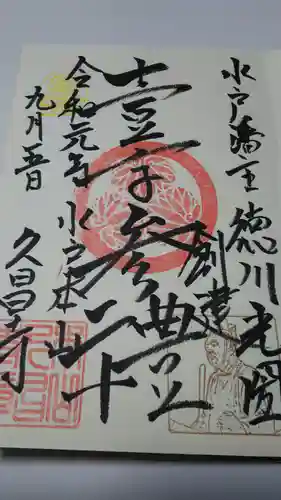 水戸藩主
徳川光圀
創建
壹字参禮
水戸本山
令和元年
九月五日
久昌寺